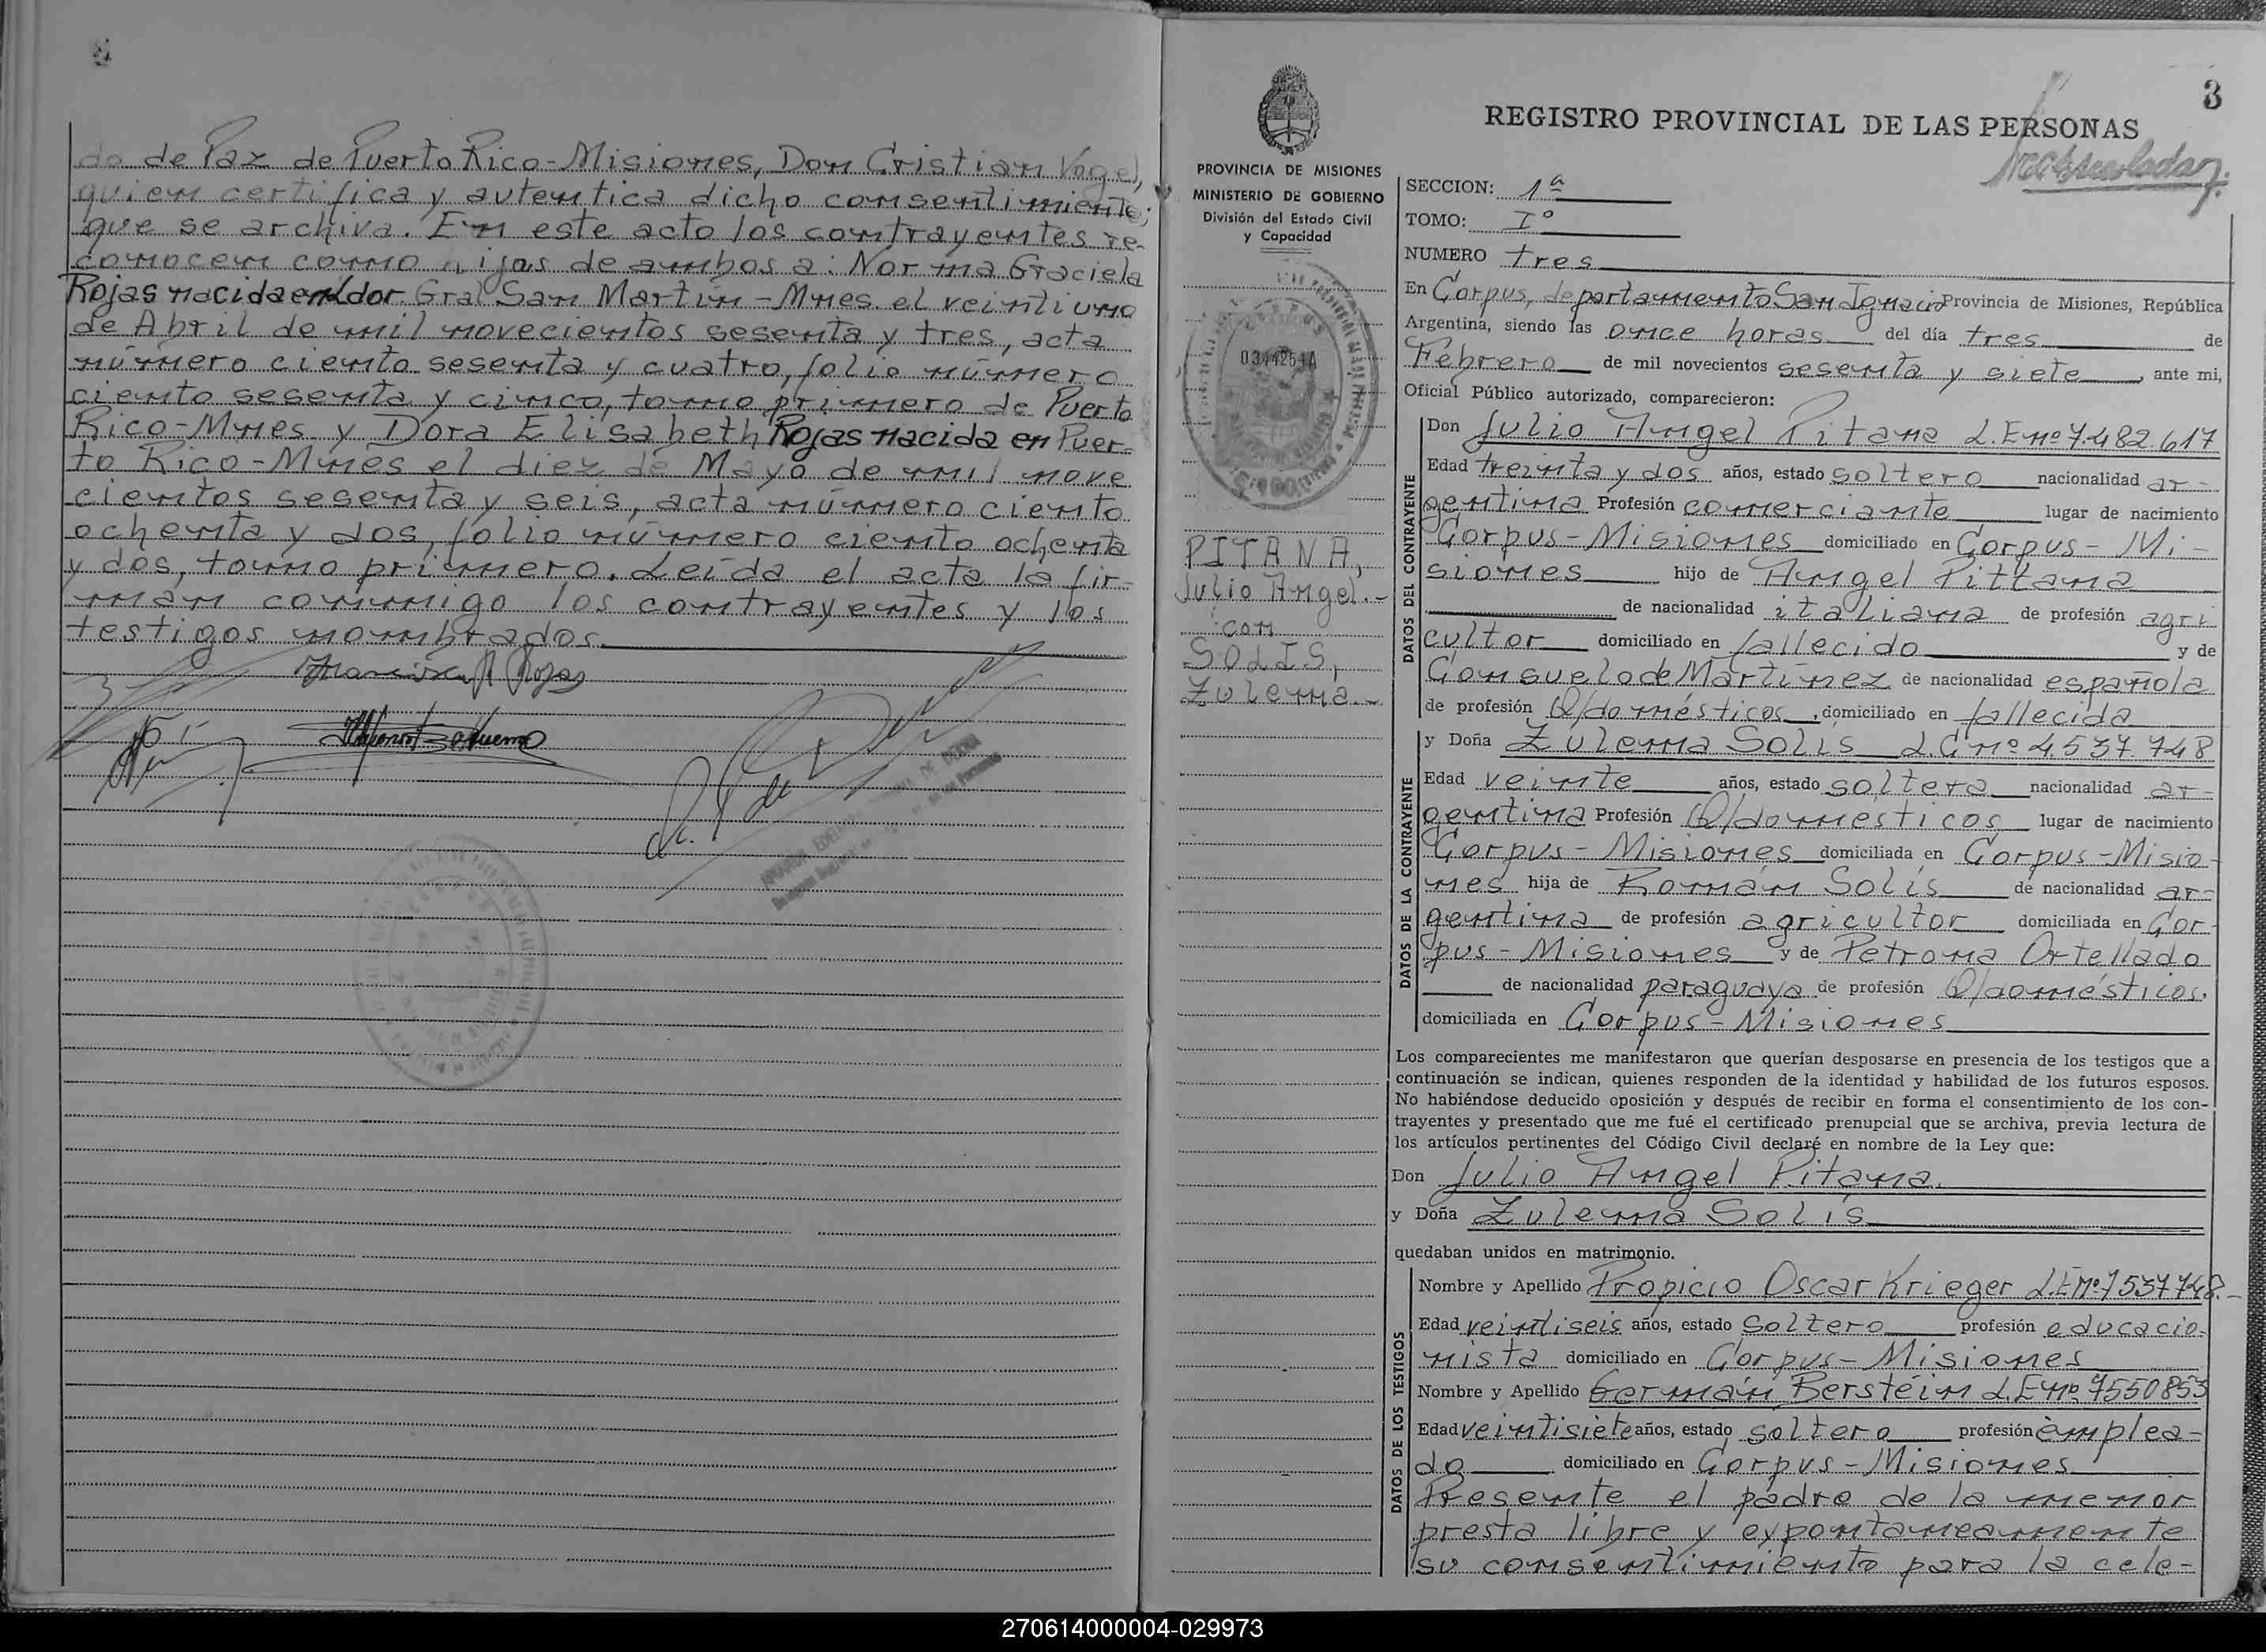 do de Paz de Puerto Rico-Misiones, Don Cristian Vogel,
quien certifica y autentica dicho consentimiento;
que se archiva. En este acto los contrayentes re-
conocen como hijas de ambos a: Norma Graciela
Rojas nacida en Ldor. Gral San Martín-Mnes. el veintiuno
de Abril de mil novecientos sesenta y tres, acta
número ciento sesenta y cuatro, folio número
ciento sesenta y cinco, tomo primero de Puerto
Rico-Mnes y Dora Elisabeth Rojas nacida en Puer-
to Rico-Mnes el diez de Mayo de mil nove
cientos sesenta y seis, acta número ciento
ochenta y dos, folio número ciento ochenta
y dos, tomo primero. Leída el acta la fir-
man conmigo los contrayentes y los
testigos nombrados.
Rojas
3
REGISTRO PROVINCIAL DE LAS PERSONAS
PROVINCIA DE MISIONES
MINISTERIO DE GOBIERNO
División del Estado Civil
y Capacidad
PITANA,
Julio Angel.-
con
SOLIS,
Zulema.-
SECCION: 1ª
TOMO: Iº
NUMERO tres
En Corpus, departamento San Ignacio Provincia de Misiones, República
Argentina, siendo las once horas del día tres de
Febrero de mil novecientos sesenta y siete, ante mi,
Oficial Público autorizado, comparecieron:
DATOS DEL CONTRAYENTE
Don Julio Angel Pitana L.E nº 7.482.617
Edad treinta y dos años, estado soltero nacionalidad ar-
gentina Profesión comerciante lugar de nacimiento
Corpus-Misiones domiciliado en Corpus-Mi-
siones hijo de Angel Pittana
de nacionalidad italiana de profesión agri
cultor domiciliado en fallecido y de
Consuelo de Martínez de nacionalidad española
de profesión Q/domésticos, domiciliado en fallecida
DATOS DE LA CONTRAYENTE
y Doña Zulema Solis L.C nº 4.537.748
Edad veinte años, estado soltera nacionalidad ar-
gentina Profesión Q/domesticos lugar de nacimiento
Corpus-Misiones domiciliada en Corpus-Misio-
nes hija de Román Solís de nacionalidad ar-
gentina de profesión agricultor domiciliada en Cor-
pus-Misiones y de Petrona Ortellado
de nacionalidad paraguaya de profesión Q/domésticos.
domiciliada en Corpus-Misiones
Los comparecientes me manifestaron que querían desposarse en presencia de los testigos que a
continuación se indican, quienes responden de la identidad y habilidad de los futuros esposos.
No habiéndose deducido oposición y después de recibir en forma el consentimiento de los con-
trayentes y presentado que me fué el certificado prenupcial que se archiva, previa lectura de
los artículos pertinentes del Código Civil declaré en nombre de la Ley que:
Don Julio Angel Pitana.
y Doña Zulema Solís
quedaban unidos en matrimonio.
DATOS DE LOS TESTIGOS
Nombre y Apellido Propicio Oscar Krieger L.E Nº 7537748.-
Edad veintiseis años, estado soltero profesión educacio-
nista domiciliado en Corpus-Misiones
Nombre y Apellido Germán Berstein L.E nº 7550853
Edad veintisiete años, estado soltero profesión emplea-
do domiciliado en Corpus-Misiones
Presente el padre de la menor
presta libre y expontaneamente
su consentimiento para la cele-
270614000004-029973